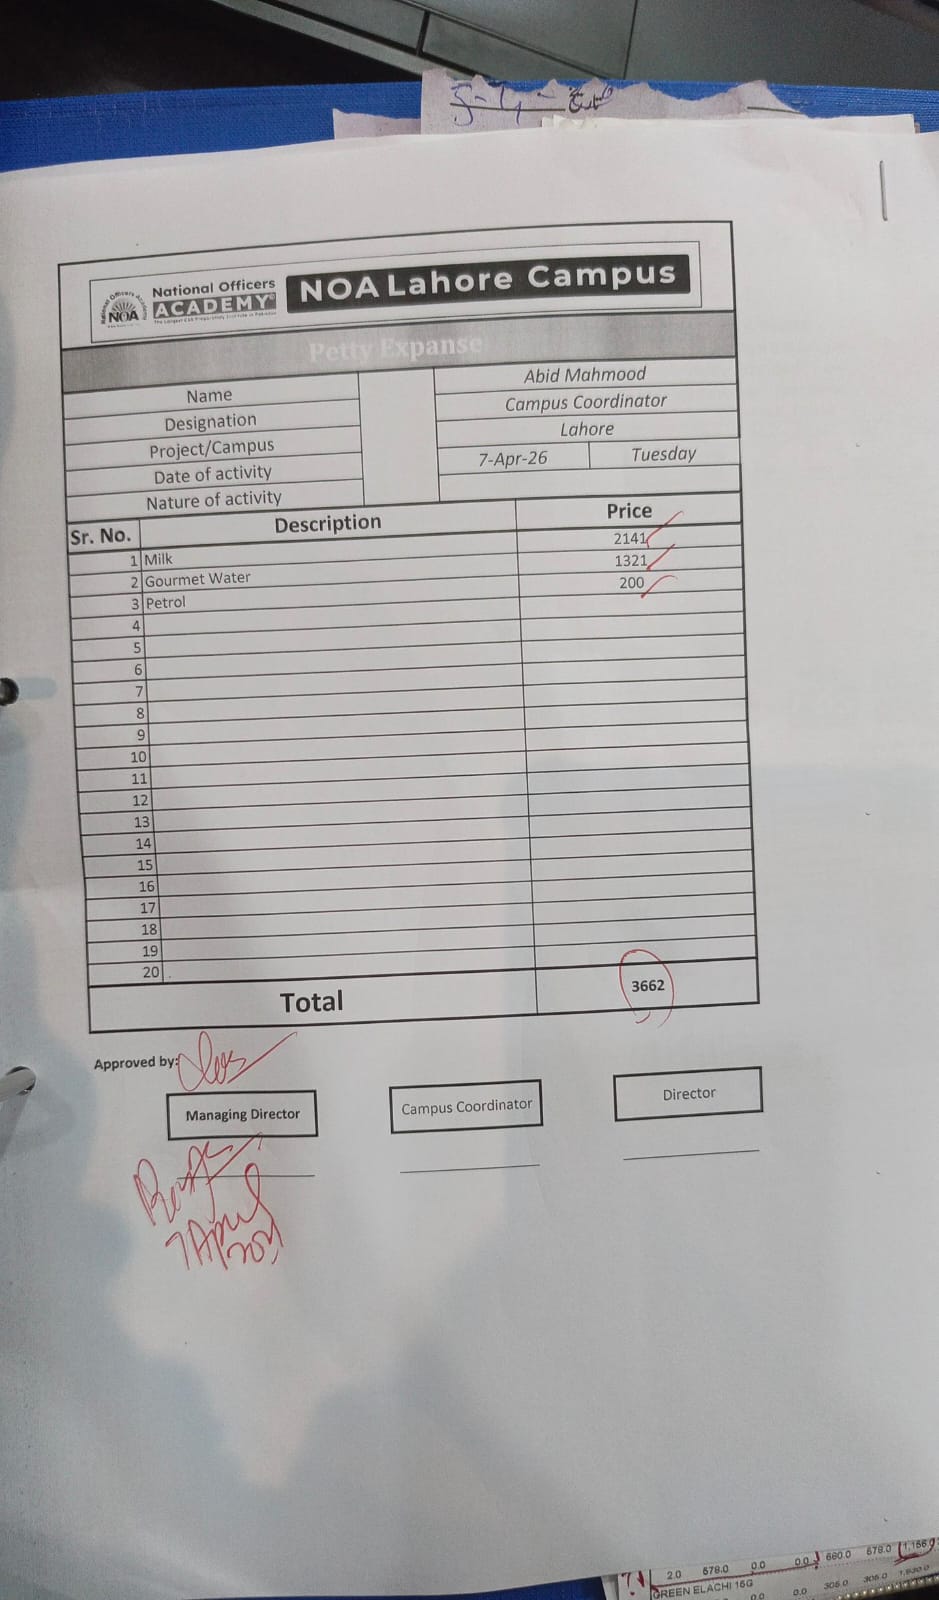 National Officers
ACADEMY
NOA
NOA Lahore Campus
Petty Expanse
Name Abid Mahmood
Designation Campus Coordinator
Project/Campus Lahore
Date of activity 7-Apr-26 Tuesday
Nature of activity
Sr. No. Description Price
1 Milk 2141
2 Gourmet Water 1321
3 Petrol 200
4
5
6
7
8
9
10
11
12
13
14
15
16
17
18
19
20
Total 3662
Approved by:
Managing Director Campus Coordinator Director
7 April
2.0 578.0 0.0 0.0 660.0 678.0 1,156.0
GREEN ELACHI 15G
0.0 0.0 305.0 305.0